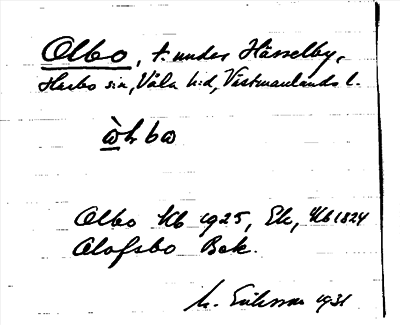 Olbo, t. under Hässelby,
Harbo sn, Våla hd, Västmanlands l.
ὼLbω
Olbo Kb 1925, Ek, Kb 1824
Olofsbo Bok.
M. Eriksson 1931